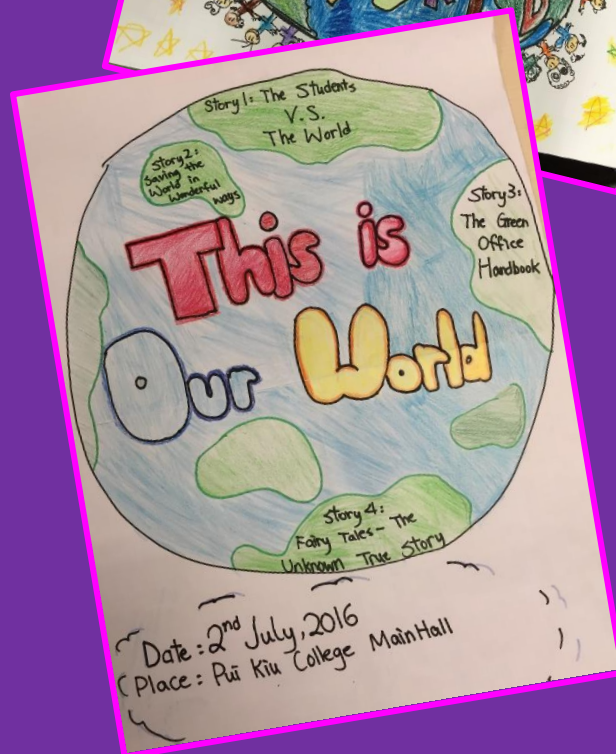 Story 1: The Students
V.S.
The World
Story 2:
Saving the
World in
Wonderful
ways
Story 3:
The Green
Office
Handbook
This is
Our World
Story 4:
Fairy Tales - The
Unknown True Story
Date: 2nd July, 2016
Place: Pui Kiu College Main Hall